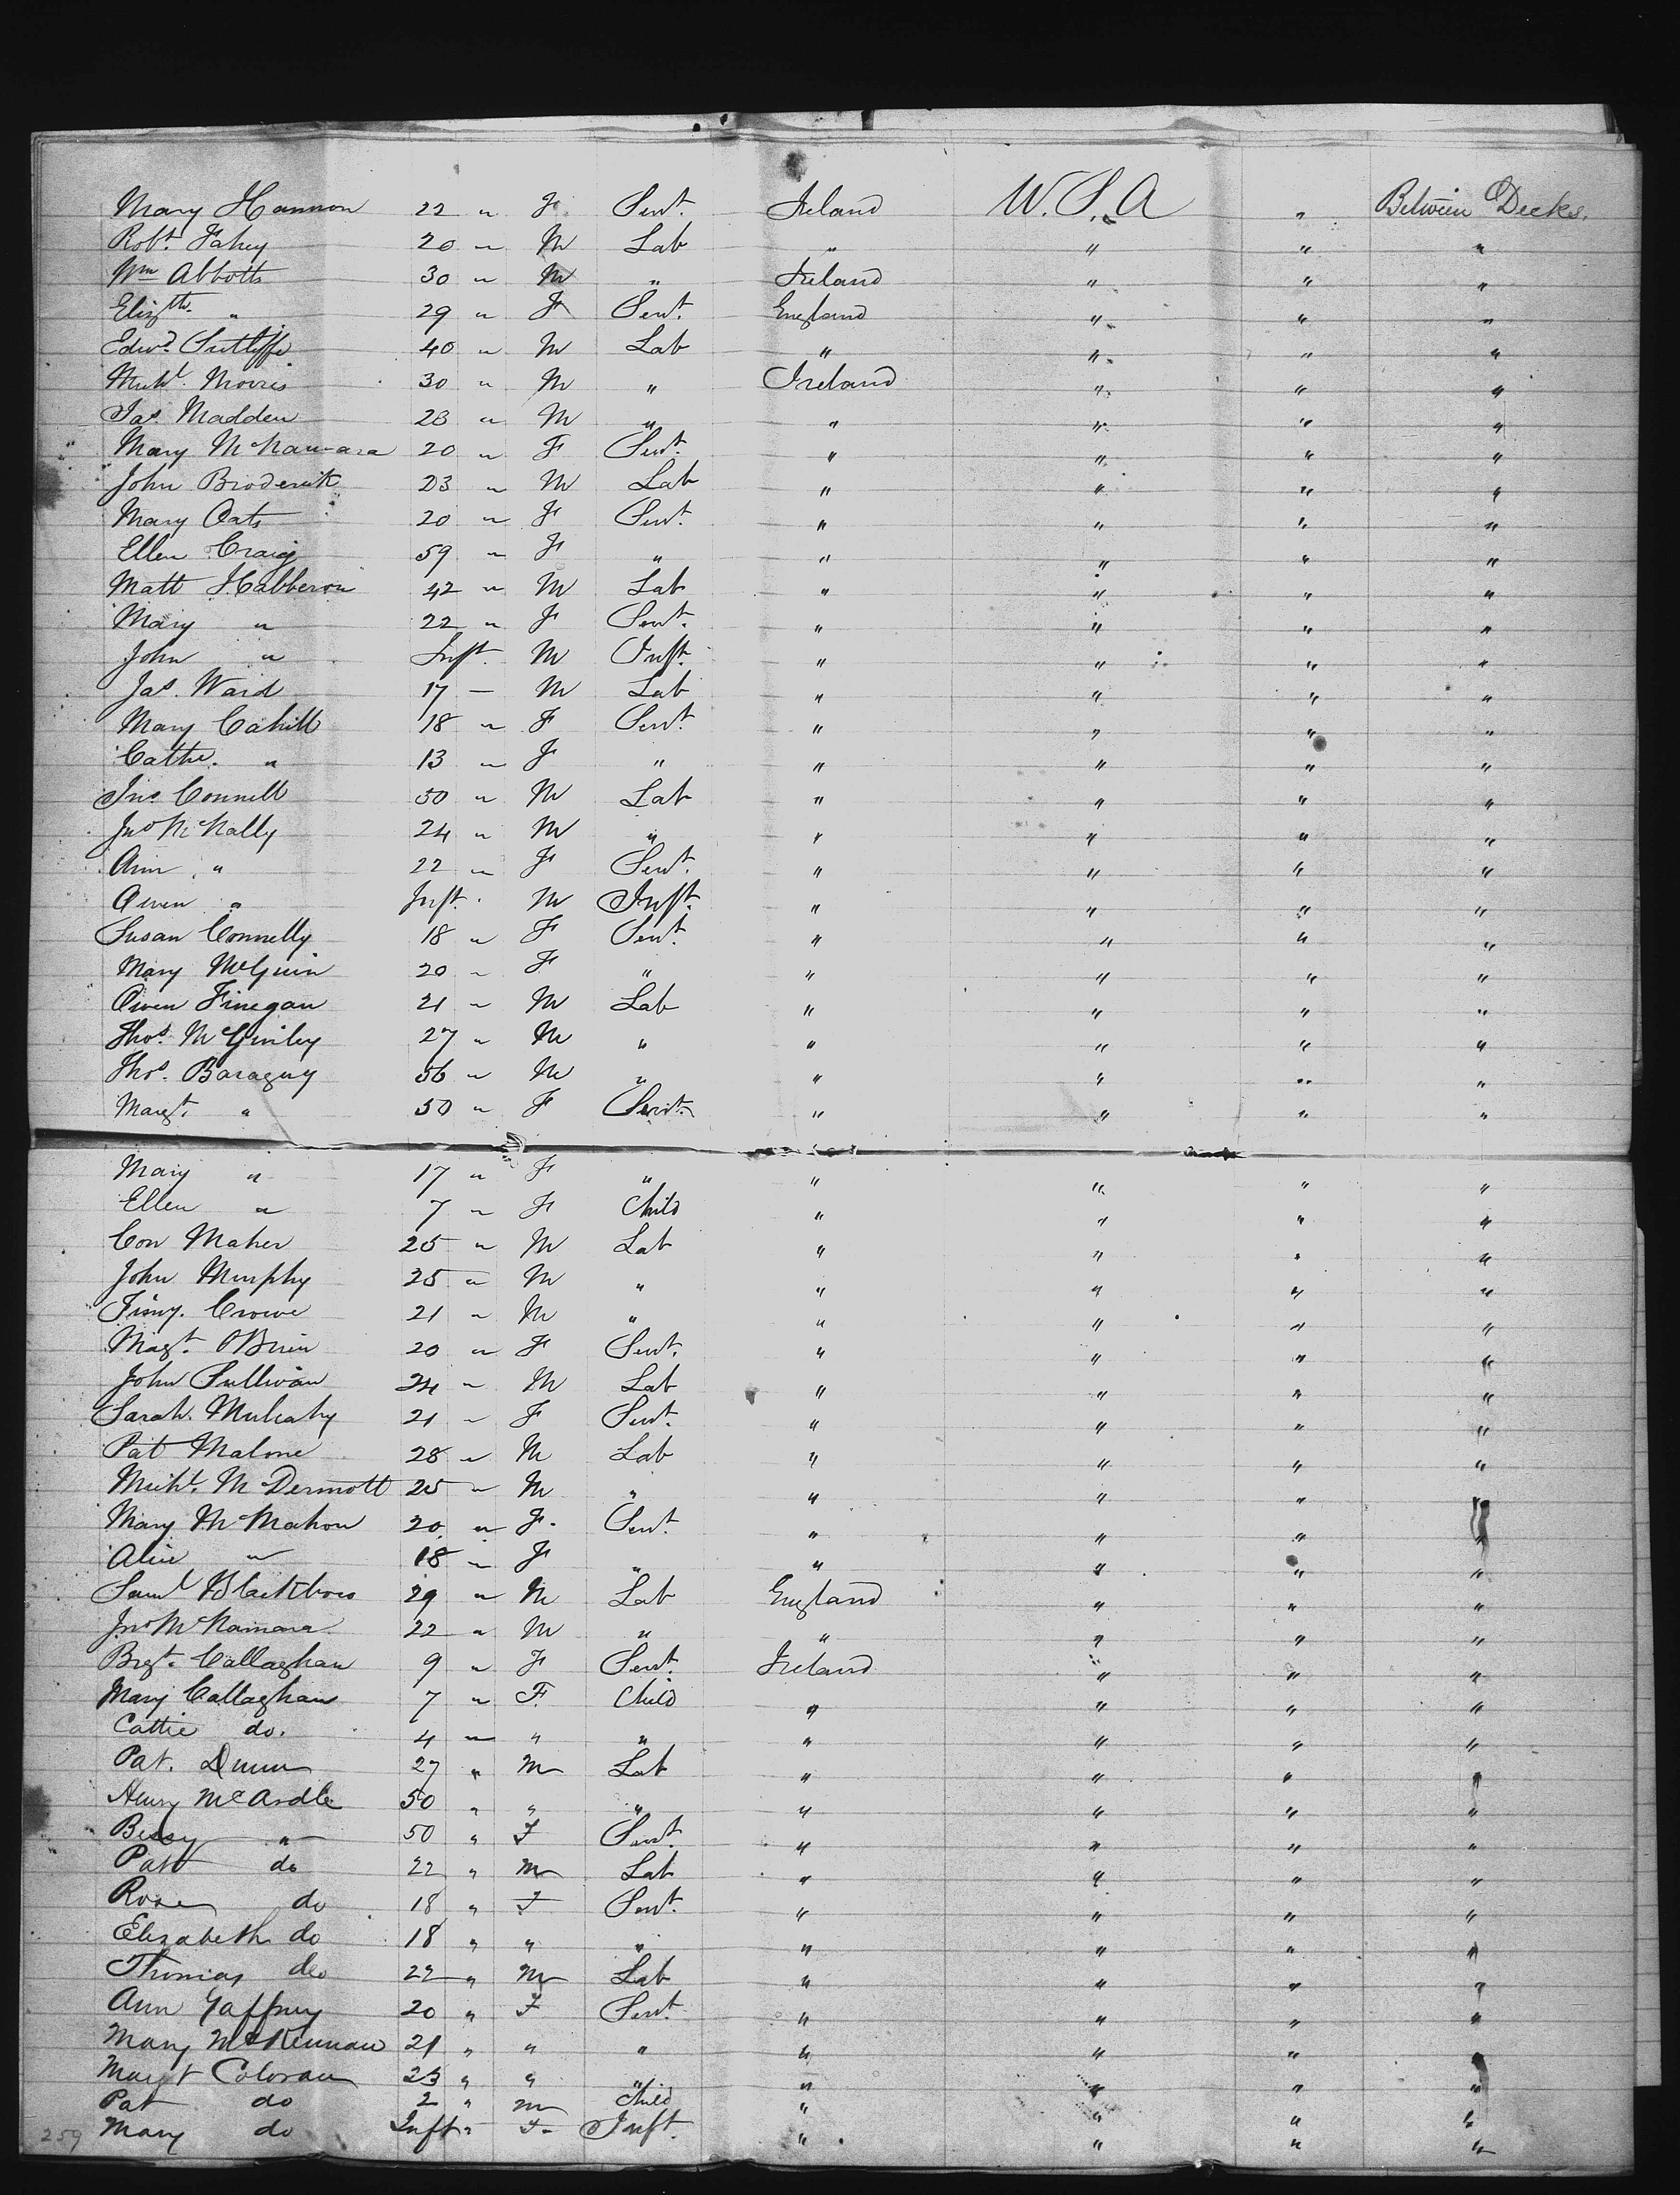 Mary Hannon 22 " F Servt. Ireland U.S.A " Between Decks.
Robt. Fahey 20 " M Lab " " " "
Wm Abbotts 30 " M " Ireland " " "
Elizth. " 29 " F Servt. England " " "
Edwd. Sutliffe 40 " M Lab " " " "
Michl. Morris 30 " M " Ireland " " "
Jas. Madden 28 " M " " " " "
Mary McNamara 20 " F Servt. " " " "
John Broderick 23 " M Lab " " " "
Mary Oats 20 " F Servt. " " " "
Ellen Craig 59 " F " " " " "
Matt Habberon 42 " M Lab " " " "
Mary " 22 " F Servt. " " " "
John " Inft. M Inft. " " " "
Jas. Ward 17 — M Lab " " " "
Mary Cahill 18 " F Servt. " " " "
Cathe. " 13 " F " " " " "
Jno. Connell 50 " M Lab " " " "
Jno McNally 24 " M " " " " "
Ann " 22 " F Servt. " " " "
Owen " Inft. M Inft. " " " "
Susan Connelly 18 " F Servt. " " " "
Mary McGuin 20 " F " " " " "
Owen Finegan 21 " M Lab " " " "
Thos. McGinley 27 " M " " " " "
Thos. Baraguy 56 " M " " " " "
Margt. " 50 " F Servt. " " " "
Mary " 17 " F " " " " "
Ellen " 7 " F Child " " " "
Con Maher 25 " M Lab " " " "
John Murphy 25 " M " " " " "
Timy. Crowe 21 " M " " " " "
Magt. OBrien 20 " F Servt. " " " "
John Sullivan 24 " M Lab " " " "
Sarah. Mulcahy 21 " F Servt. " " " "
Pat Malone 28 " M Lab " " " "
Michl. McDermott 25 " M " " " " "
Mary McMahon 20 " F. Servt. " " " "
Alice " 18 " F " " " " "
Saml 29 " M Lab England " " "
Jno McNamara 22 " M " " " " "
Brgt. Callaghan 9 " F Servt. Ireland " " "
Mary Callaghan 7 " F. Child " " " "
Cattie do. 4 " " " " " " "
Pat. Dunn 27 " M Lab " " " "
Henry McArdle 50 " " " " " " "
Bessy " 50 " F Servt. " " " "
Patk do 22 " M Lab " " " "
Rose do 18 " F Servt. " " " "
Elizabeth do 18 " " " " " " "
Thomas do 22 " M Lab " " " "
Ann Gaffney 20 " F Servt. " " " "
Mary McKennan 21 " " " " " " "
Margt Coloran 23 " " " " " " "
Pat do 2 " M Child " " " "
Mary do Inft. " F. Inft. " " " "
259